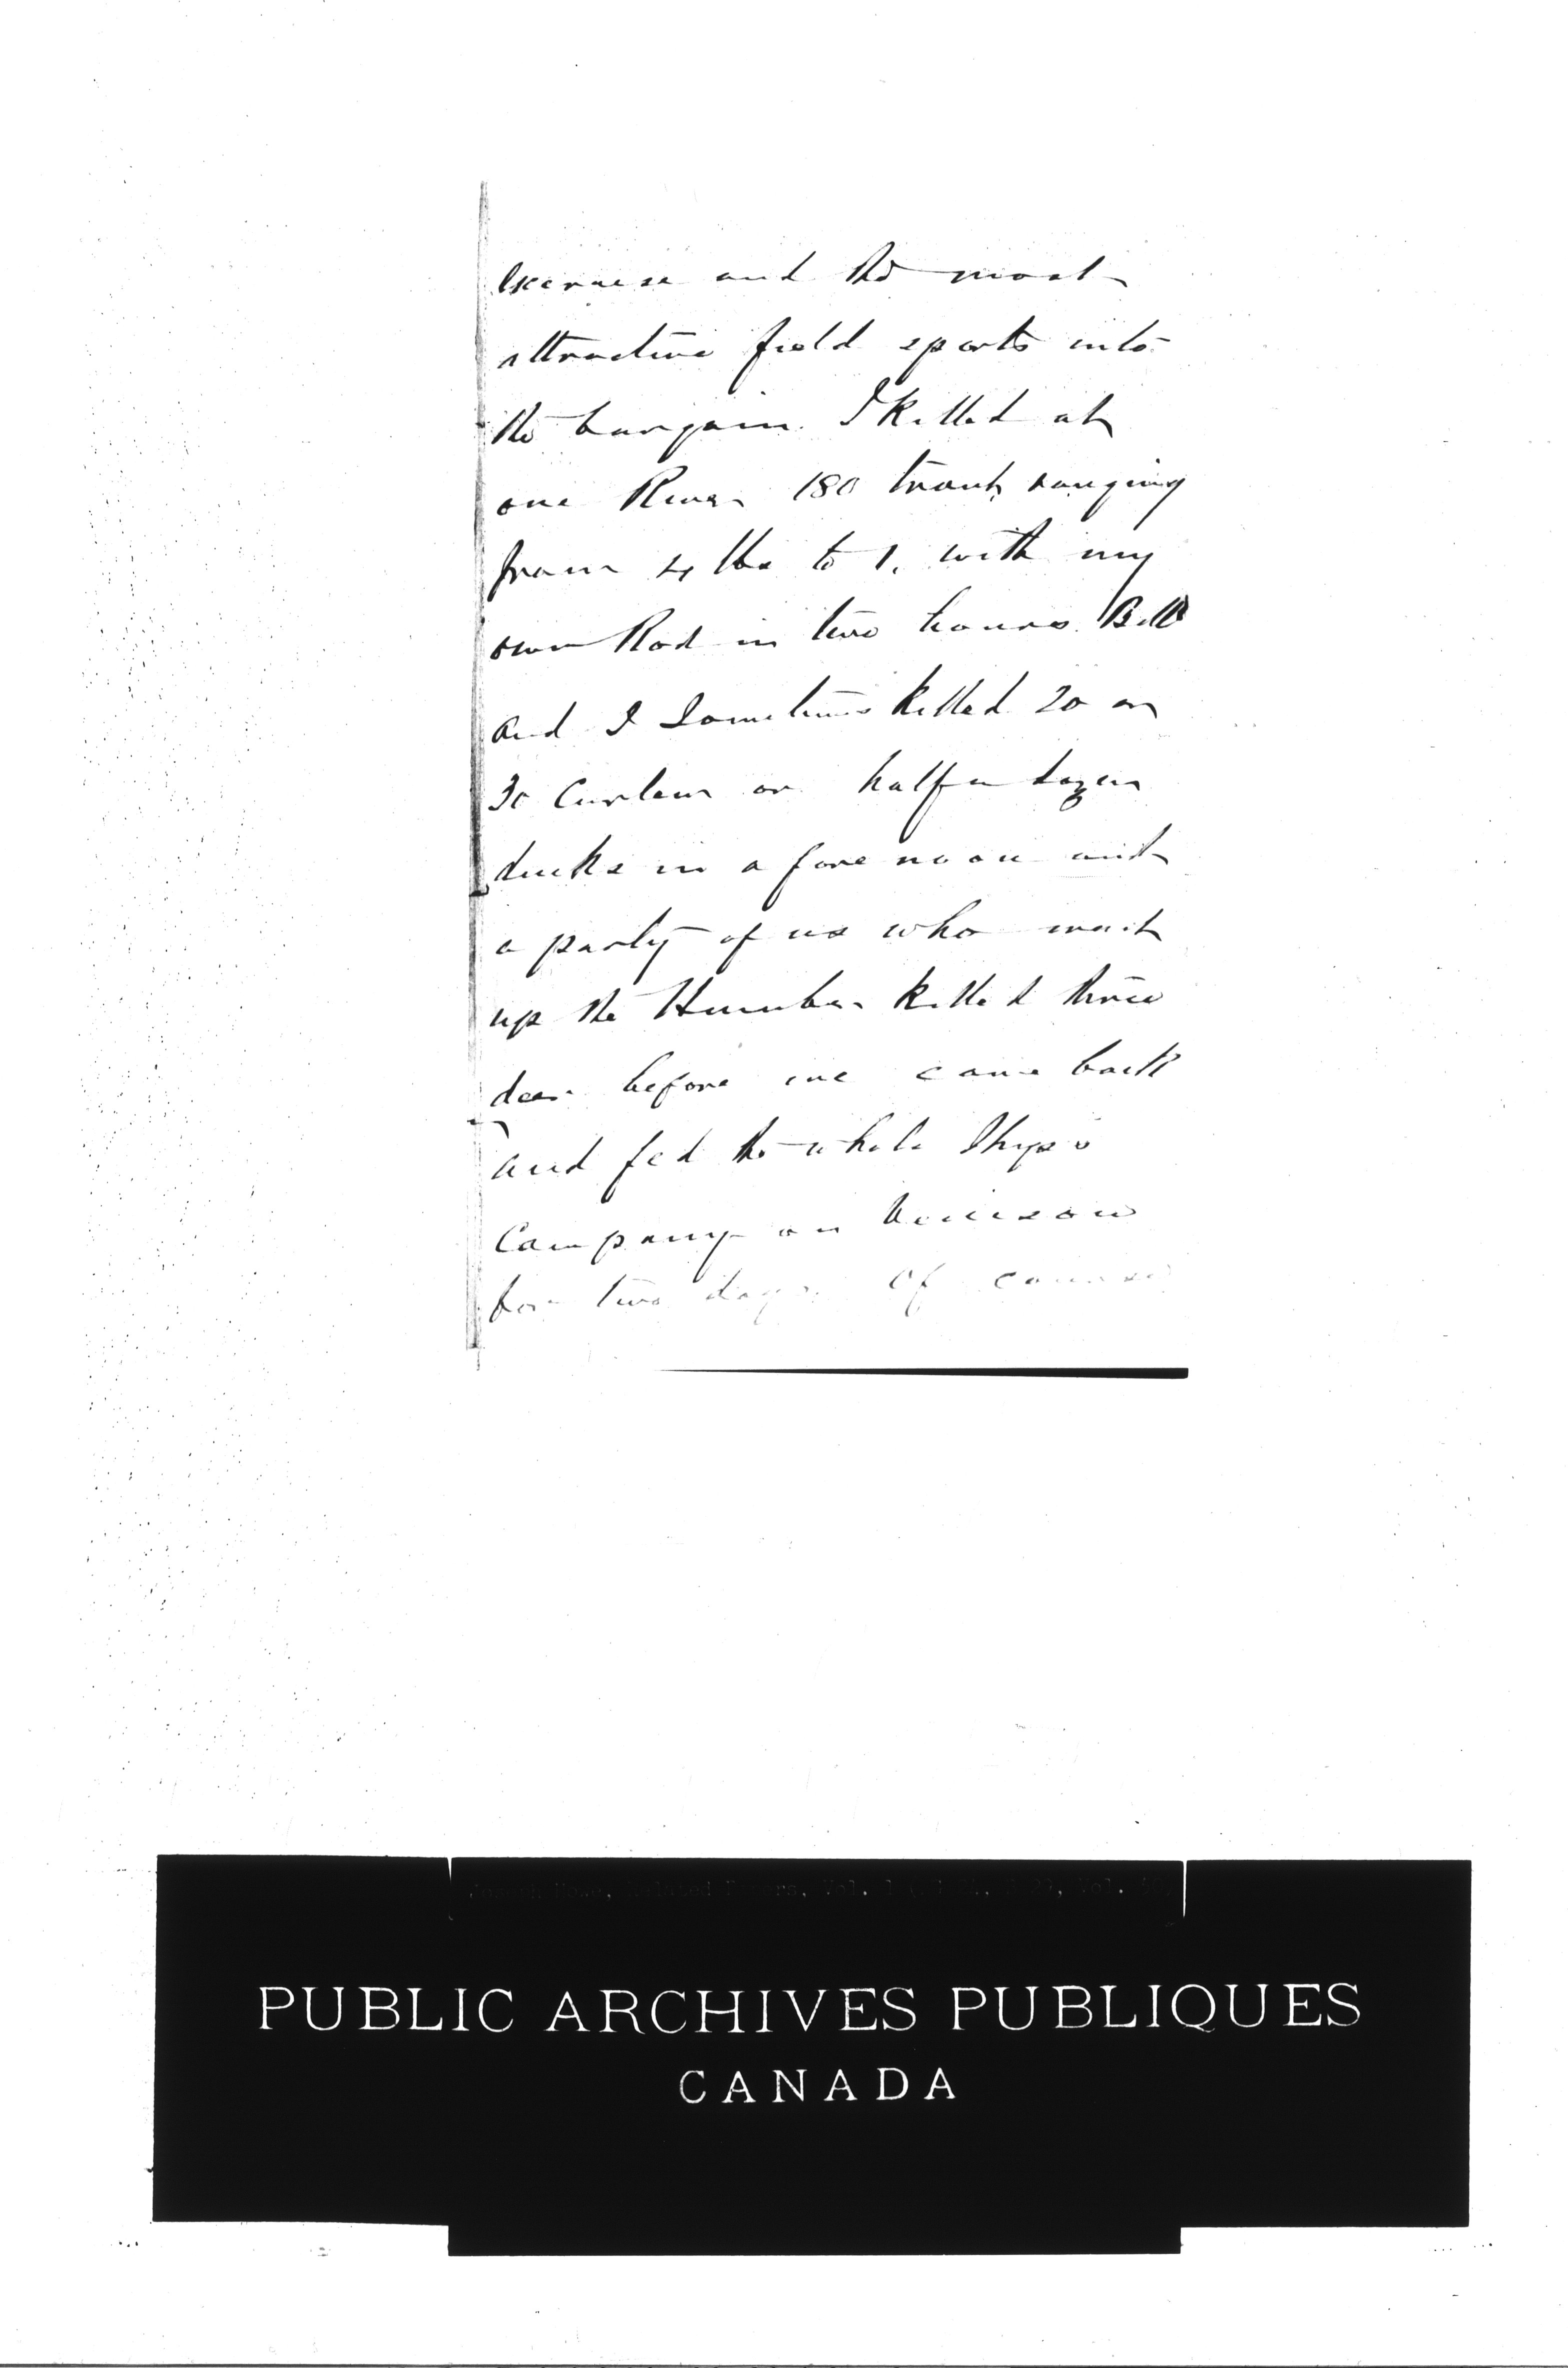 Exercise and the most
attractive field sports into
the bargain. I killed at
one River 180 trout, ranging
from 4 lbs to 1, with my
own Rod in two hours. Bill
and I sometimes killed 20 or
30 Curlew or half a dozen
ducks in a fore noon and
a party of us who went
up the Humber killed three
deer before we came back
and fed the whole Ship's
Company on Venison
for two days. Of course
PUBLIC ARCHIVES PUBLIQUES
CANADA